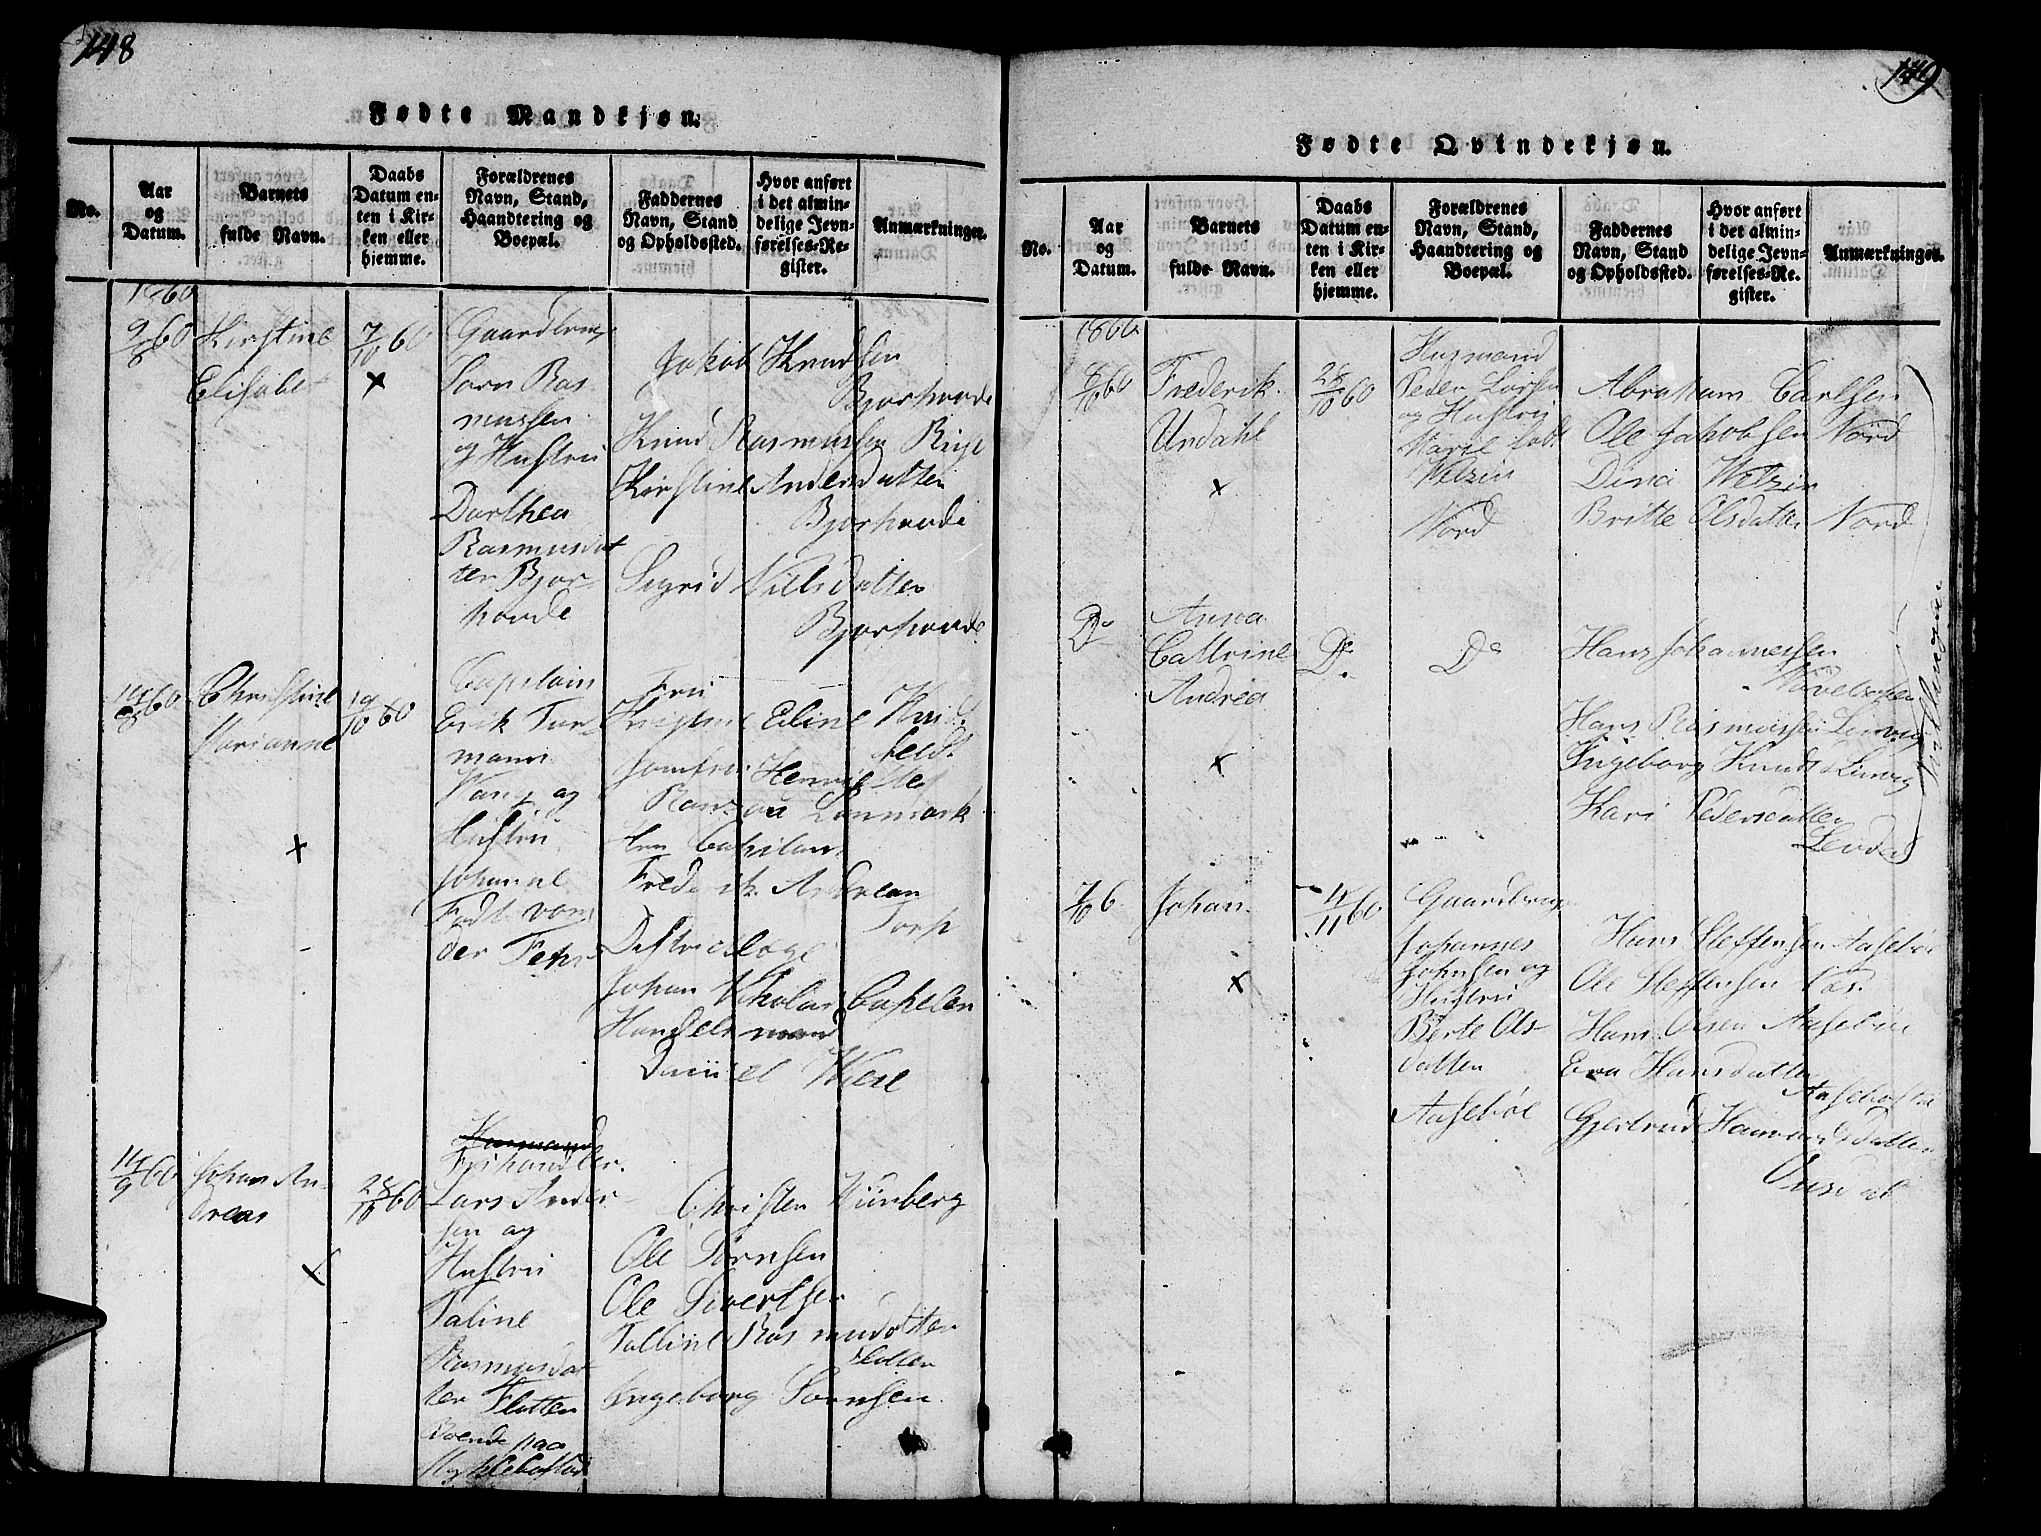 148
Fødte Mandkjøn.
No.
Aar og Datum.
Barnets fulde Navn.
Daabs Datum enten i Kirken eller hjemme.
Forældrenes Navn, Stand, Haandtering og Boepæl.
Faddernes Navn, Stand og Opholdssted.
Hvor anført i det almindelige Jevnførelses-Register.
Anmærkninger.
1860
9/8 60
Kirstine
Elisabet
7/10 60
x
Gaardbrug
Sørn Ras
mussen
og Hustrii
Dorthea
Rasmusdat
ter Bjør
hovde
Jakob Knudsen
Bjørhovde
Knud Rasmussen Rige
Kirstine Andersdatter
Bjørhovde
Sigrid Nilsdatter
Bjørhovde
14/8 60
Christine
Marianne
x
19/10 60
Capelain
Erik Tur
mann
Wang og
Hustrii
Johanne
Født von
der Fehr
Frii
Kristine Edine Hvid
feldt
Jomfru Henrijette
Ranzau Lonmark
Herr Capilan
Frederik Andrean
Torp
Destriclæge
Johan Nikolai Capelen
Handelsmand
Daniel Wiese
14/9 60
Johan An
dreas
x
28/10 60
Husmand
Frihandler
Lars Ander
sen og
Hustrii
Taline
Rasmusdat
ter Flotten
Boende paa
Myklebostad
Christen Wiinberg
Ole Sørnsen
Ole Sivertsen
Talline Rasmusdotter
Flotten
Ingeborg Sørnsen
149
Fødte Qvindekjøn.
No.
Aar og Datum.
Barnets fulde Navn.
Daabs Datum enten i Kirken eller hjemme.
Forældrenes Navn, Stand, Haandtering og Boepæl.
Faddernes Navn, Stand og Opholdssted.
Hvor anført i det almindelige Jevnførelses-Register.
Anmærkninger.
1860
8/10 60
Frederik
Urdahl
x
28/10 60
Husmand
Peder Larsen
og Hustrii
Marie født
Welzin
Nord
Abraham Carlsen
Ole Jakobsen Nord
Dina Welzin
Britte Olsdatter Nord
Do
Anna
Cattrine
Andrea
x
Do
Do
Hans Johannessen
Hans Rasmussen Leirvig
Ingeborg Knuds Leirvig
Kari Pedersdatter
Tvillinger
7/10 6
Johan
x
4/11 60
Gaardbrug
Johannes
Johnsen og
Hustrii
Berte Ols
datter
Aasebøe
Hans Steffensen Aasebøe
Ole Steffensen
Hans Olsen Aasebøe
Eva Hansdatter
Aasebøe
Gjertrud Hammundsdatter